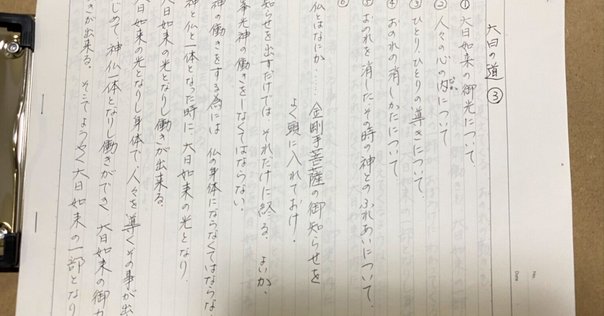 大日の道 ③
① 大日如来の御光について
② 人々の心の内について
③ ひとりひとりの導きについて
④ おのれの消しかたについて
⑤ おのれを消したその時の神とのふれあいについて.
⑥
仏とはなにか…… 金剛手菩薩の御知らせを
よく頭に入れておけ.
知らせを出すだけでは それだけに終る. よいか.
光神の働きをしなくてはならない.
神の働きをする為には 仏の身体にならなくてはならな
神と仏一体となった時に 大日如来の光となり.
大日如来の光となりし働きが出来る.
大日如来の光となりし身体で 人々を導くその事が出
じめて神仏一体となりし働きができ 大日如来の御力
きが出来る. そこでようやく大日如来の一部となり
No.
Date